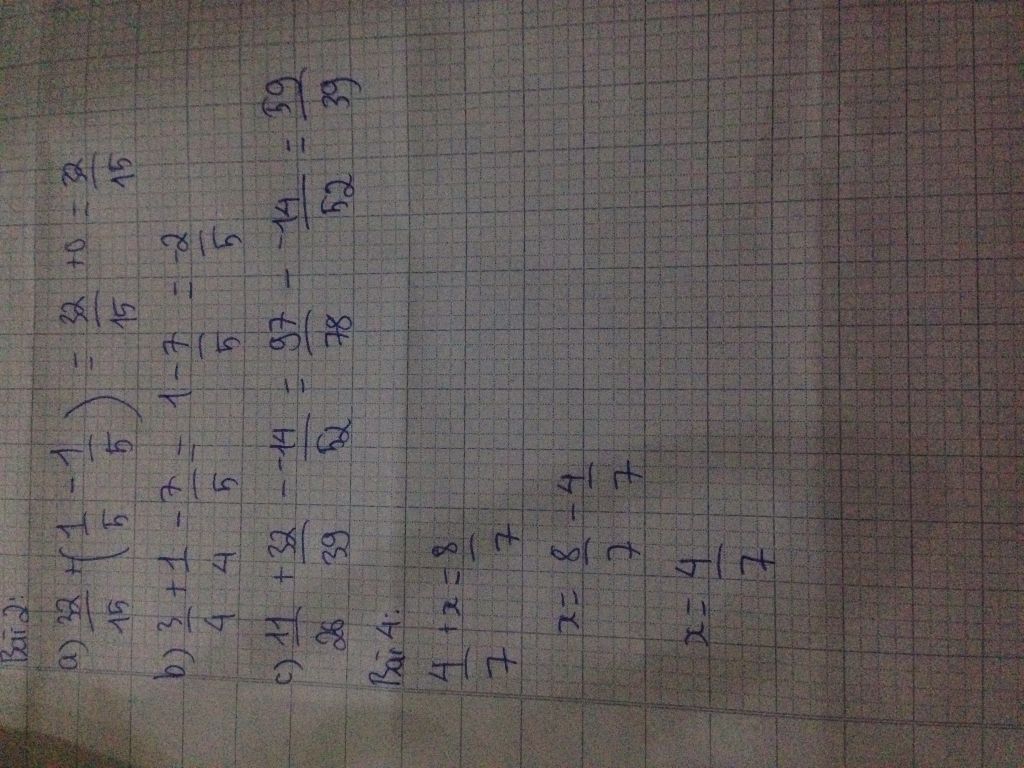 Bài 2:
a) 32/15 + (1/5 - 1/5) = 32/15 + 0 = 32/15
b) 3/4 + 1/4 - 7/5 = 1 - 7/5 = -2/5
c) 11/26 + 32/39 - -14/52 = 97/78 - -14/52 = 59/39
Bài 4:
4/7 + x = 8/7
x = 8/7 - 4/7
x = 4/7